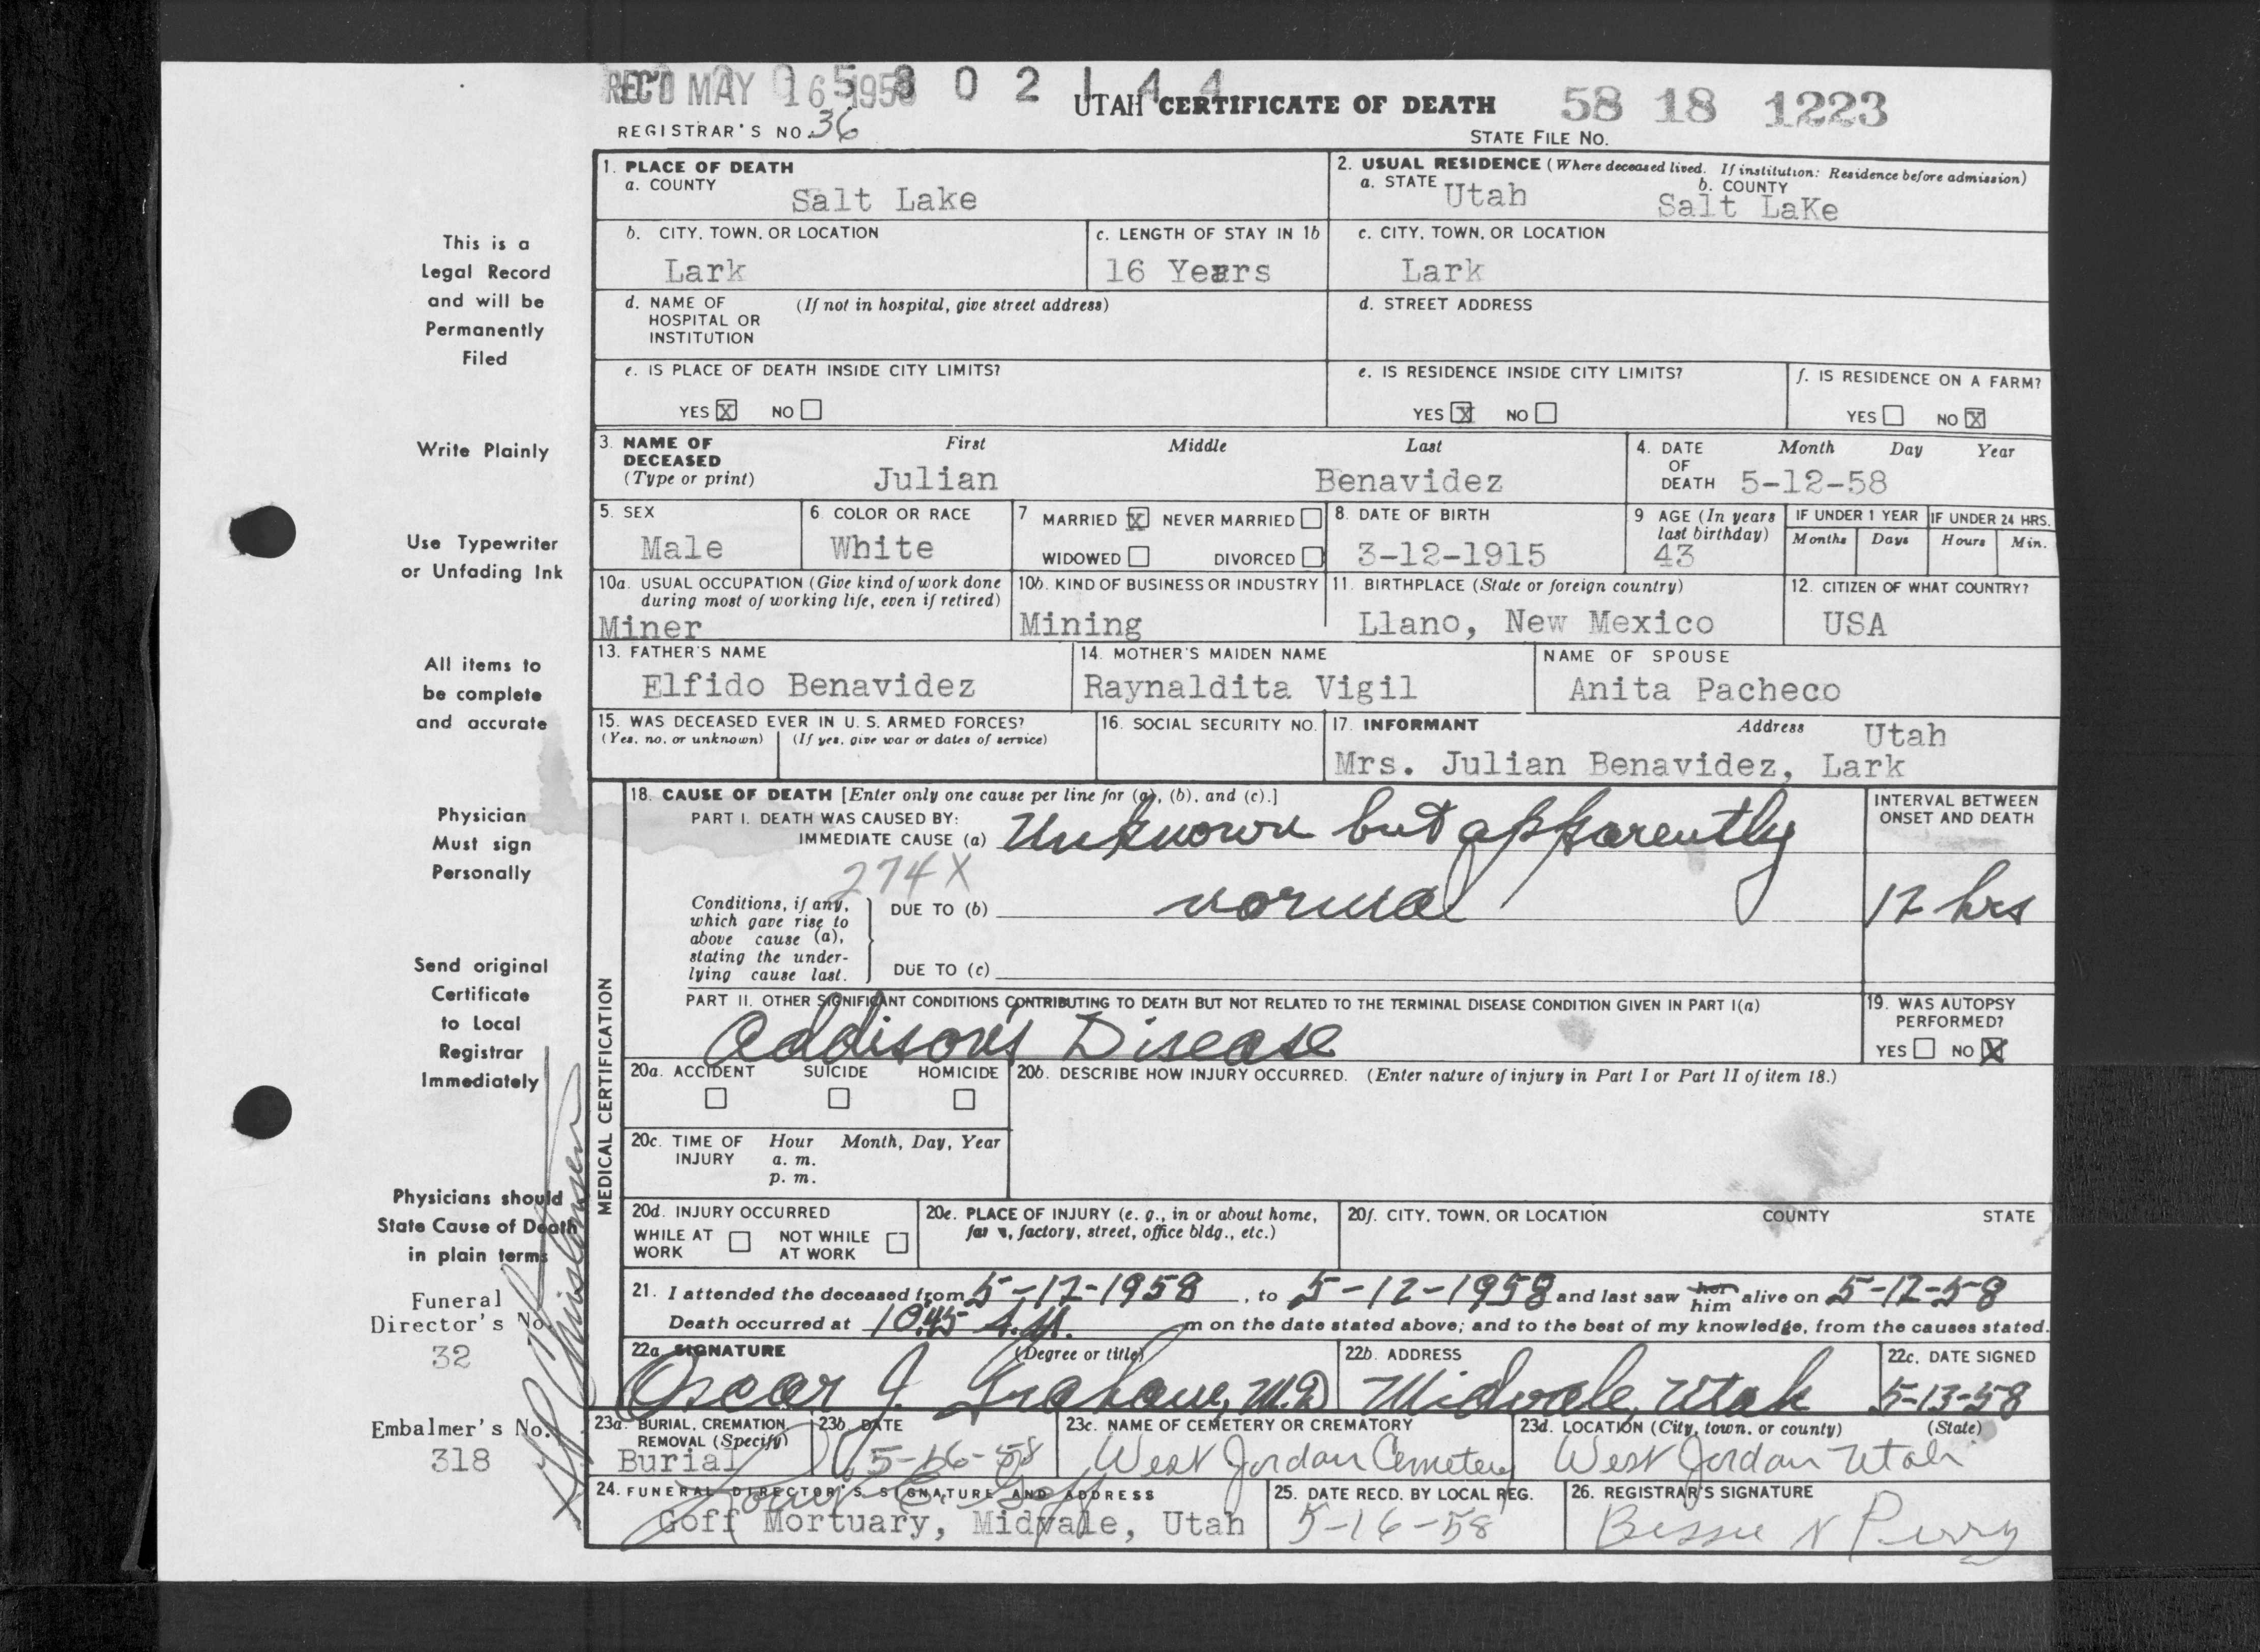 REC'D MAY 16 1958 0 2 1 4 4
UTAH CERTIFICATE OF DEATH
58 18 1223
REGISTRAR'S NO. 36
STATE FILE NO.
1. PLACE OF DEATH
a. COUNTY
Salt Lake
2. USUAL RESIDENCE (Where deceased lived. If institution: Residence before admission)
a. STATE Utah
b. COUNTY
Salt LaKe
b. CITY, TOWN, OR LOCATION
Lark
c. LENGTH OF STAY IN 1b
16 Years
c. CITY, TOWN, OR LOCATION
Lark
d. NAME OF HOSPITAL OR INSTITUTION
(If not in hospital, give street address)
d. STREET ADDRESS
e. IS PLACE OF DEATH INSIDE CITY LIMITS?
YES X NO
e. IS RESIDENCE INSIDE CITY LIMITS?
YES X NO
f. IS RESIDENCE ON A FARM?
YES NO X
3. NAME OF DECEASED (Type or print)
First Middle Last
Julian Benavidez
4. DATE OF DEATH
Month Day Year
5-12-58
5. SEX
Male
6. COLOR OR RACE
White
7 MARRIED X NEVER MARRIED
WIDOWED DIVORCED
8. DATE OF BIRTH
3-12-1915
9 AGE (In years last birthday)
43
IF UNDER 1 YEAR
Months Days
IF UNDER 24 HRS.
Hours Min.
10a. USUAL OCCUPATION (Give kind of work done during most of working life, even if retired)
Miner
10b. KIND OF BUSINESS OR INDUSTRY
Mining
11. BIRTHPLACE (State or foreign country)
Llano, New Mexico
12. CITIZEN OF WHAT COUNTRY?
USA
13. FATHER'S NAME
Elfido Benavidez
14. MOTHER'S MAIDEN NAME
Raynaldita Vigil
NAME OF SPOUSE
Anita Pacheco
15. WAS DECEASED EVER IN U. S. ARMED FORCES?
(Yes, no, or unknown) (If yes, give war or dates of service)
16. SOCIAL SECURITY NO.
17. INFORMANT Address Utah
Mrs. Julian Benavidez, Lark
18. CAUSE OF DEATH [Enter only one cause per line for (a), (b), and (c).]
PART I. DEATH WAS CAUSED BY:
IMMEDIATE CAUSE (a) Unknown but apparently
274X
Conditions, if any, which gave rise to above cause (a), stating the underlying cause last.
DUE TO (b) normal
DUE TO (c)
INTERVAL BETWEEN ONSET AND DEATH
12 hrs
PART II. OTHER SIGNIFICANT CONDITIONS CONTRIBUTING TO DEATH BUT NOT RELATED TO THE TERMINAL DISEASE CONDITION GIVEN IN PART I(a)
Addison's Disease
19. WAS AUTOPSY PERFORMED?
YES NO X
MEDICAL CERTIFICATION
20a. ACCIDENT SUICIDE HOMICIDE
20b. DESCRIBE HOW INJURY OCCURRED. (Enter nature of injury in Part I or Part II of item 18.)
20c. TIME OF INJURY
Hour Month, Day, Year
a. m.
p. m.
20d. INJURY OCCURRED
WHILE AT WORK NOT WHILE AT WORK
20e. PLACE OF INJURY (e. g., in or about home, farm, factory, street, office bldg., etc.)
20f. CITY, TOWN, OR LOCATION COUNTY STATE
21. I attended the deceased from 5-12-1958, to 5-12-1958 and last saw her him alive on 5-12-58
Death occurred at 10:45 A.M. m on the date stated above; and to the best of my knowledge, from the causes stated.
22a. SIGNATURE (Degree or title)
Oscar J. Graham, M.D
22b. ADDRESS
Midvale, Utah
22c. DATE SIGNED
5-13-58
23a. BURIAL, CREMATION REMOVAL (Specify)
Burial
23b. DATE
5-16-58
23c. NAME OF CEMETERY OR CREMATORY
West Jordan Cemetery
23d. LOCATION (City, town, or county) (State)
West Jordan Utah
24. FUNERAL DIRECTOR'S SIGNATURE AND ADDRESS
Goff Mortuary, Midvale, Utah
25. DATE RECD. BY LOCAL REG.
5-16-58
26. REGISTRAR'S SIGNATURE
Bessie N Perry
This is a
Legal Record
and will be
Permanently
Filed
Write Plainly
Use Typewriter
or Unfading Ink
All items to
be complete
and accurate
Physician
Must sign
Personally
Send original
Certificate
to Local
Registrar
Immediately
Physicians should
State Cause of Death
in plain terms
Funeral
Director's No.
32
Embalmer's No.
318